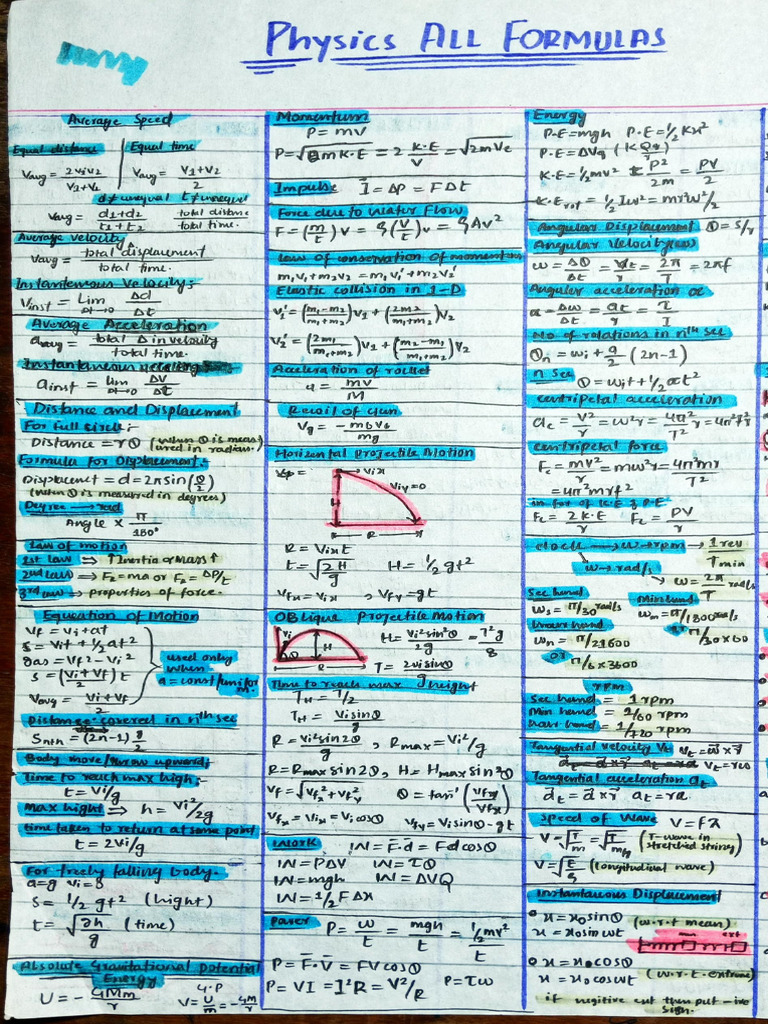 Physics ALL FORMULAS
Average Speed
Equal distance | Equal time
Vavg = 2v1v2/V1+V2 | Vavg = V1+V2/2
d≠unequal t≠unequal
Vavg = d1+d2/t1+t2 total distance/total time.
Average velocity
Vavg = total displacement/total time.
Instantaneous Velocity:
Vinst = Lim Δt→0 Δd/Δt
Average Acceleration
aavg = total Δ in velocity/total time.
Instantaneous
ainst = lim Δt→0 ΔV/Δt
Distance and Displacement
For full circle:
Distance = rθ (when θ is measured in radian.
Formula for Displacement.
Displacment = d = 2rsin(θ/2)
(when θ is measured in degrees)
Degree → rad
Angle × π/180°
Law of motion
1st law ⇒ ↑Inertia or Mass↑
2nd law ⇒ F2 = ma or F2 = ΔP/t
3rd law → properties of force.
Equation of Motion
Vf = Vi+at
S = Vit + 1/2 at²
2as = Vf² - Vi²
S = (Vi+Vf/2)t
Vavg = Vi+Vf/2
used only
when
a = const/uniform.
Distance covered in nth sec
Snth = (2n-1) g/2
Body move/throw upward;
Time to reach max high:-
t = Vi/g
Max hight ⇒ h = Vi²/2g
time taken to return at same point
t = 2Vi/g
For freely falling body.
a=g Vi=0
S = 1/2 gt² (hight)
t = √2h/g (time)
Absolute Gravitational potential
Energy
U = - GMm/r G.P V = U/m = -GM/r
Momentum
P = mv
P = √2mK.E = 2 K.E/V = √2mVe
Impulse I = ΔP = FΔt
Force due to water flow
F = (m/t)V = ρ(V/t)v = ρAv²
Law of conservation of momentum
m1V1+m2V2 = m1V1'+m2V2'
Elastic collision in 1-D
V1' = (m1-m2/m1+m2)V1 + (2m2/m1+m2)V2
V2' = (2m1/m1+m2)V1 + (m2-m1/m1+m2)V2
Acceleration of rocket
a = mv/M
Recoil of Gun
Vg = -mbVb/mg
Horizental projectile Motion
Vix
Viy=0
H
R
R = Vix t
t = √2H/g H = 1/2 gt²
Vfx = Vix , Vfy = gt
Oblique Projectile Motion
Vi
θ
H
R
H = Vi²sin²θ/2g = T²g/8
T = 2Visinθ/g
Time to reach max height
TH = T/2
TH = Visinθ/g
R = Vi²sin2θ/g , Rmax = Vi²/g
R = Rmax sin2θ , H = Hmax sin²θ
Vf = √Vfx²+Vfy² θ = tan⁻¹(Vfy/Vfx)
Vfx = Vix = Vicosθ Vfy = Visinθ-gt
Work W = F.d = Fdcosθ
W = PΔV W = τθ
W = mgh W = ΔVQ
W = 1/2 FΔx
Power P = W/t = mgh/t = 1/2mv²/t
P = F.V = FVcosθ
P = VI = I²R = V²/R P = τω
Energy
P.E = mgh P.E = 1/2 Kx²
P.E = ΔVq (KQq/r)
K.E = 1/2 mv² = P²/2m = PV/2
K.Erot = 1/2 Iω² = mr²ω²/2
Angular Displacement θ = S/r
Angular Velocity(ω)
ω = Δθ/Δt = V/r = 2π/T = 2πf
Angular acceleration α
α = Δω/Δt = at/r = τ/I
No of rotations in nth sec
θn = ωi + α/2 (2n-1)
n sec θ = ωit + 1/2 αt²
centripetal acceleration
ac = V²/r = ω²r = 4π²/T² r = 4π²f²r
centripetal force
Fc = mv²/r = mω²r = 4π²mr/T²
= 4π²mrf²
in for of K.E & P.E
Fc = 2K.E/r Fc = PV/r
clock → ω → rpm → 1rev/Tmin
ω → rad/s → ω = 2π/T rad/s
Sec hand Min hand
ωs = π/30 rad/s ωm = π/1800 rad/s
hour hand π/30×60
ωh = π/21600
or π/6×3600
rpm
Sec hand = 1 rpm
Min hand = 1/60 rpm
hour hand = 1/720 rpm
Tangential velocity Vt Vt = ω×r
Vt = rω
Tangential acceleration at
at = α×r at = rα
Speed of Wave V = fλ
(T-wave in stretched string)
(longitudinal wave)
Instantaneous Displacement
x = x0 sinθ (w.r.t mean)
x = x0 sinωt
mean
ext
x = x0 cosθ
x = x0 cosωt (w.r.t. extreme)
if negitive ext then put -ive
sign.